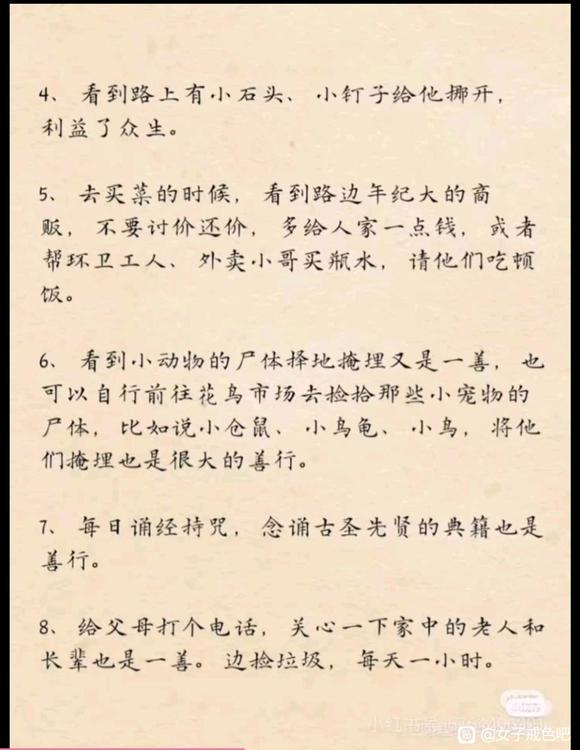 4、 看到路上有小石头、 小钉子给他挪开，
利益了众生。
5、 去买菜的时候， 看到路边年纪大的商
贩， 不要讨价还价， 多给人家一点钱， 或者
帮环卫工人、 外卖小哥买瓶水， 请他们吃顿
饭。
6、 看到小动物的尸体择地掩埋又是一善， 也
可以自行前往花鸟市场去捡拾那些小宠物的
尸体， 比如说小仓鼠、 小乌龟、 小鸟， 将他
们掩埋也是很大的善行。
7、 每日诵经持咒， 念诵古圣先贤的典籍也是
善行。
8、 给父母打个电话， 关心一下家中的老人和
长辈也是一善。 边捡垃圾， 每天一小时。
小红书
贴 @女子戒色吧